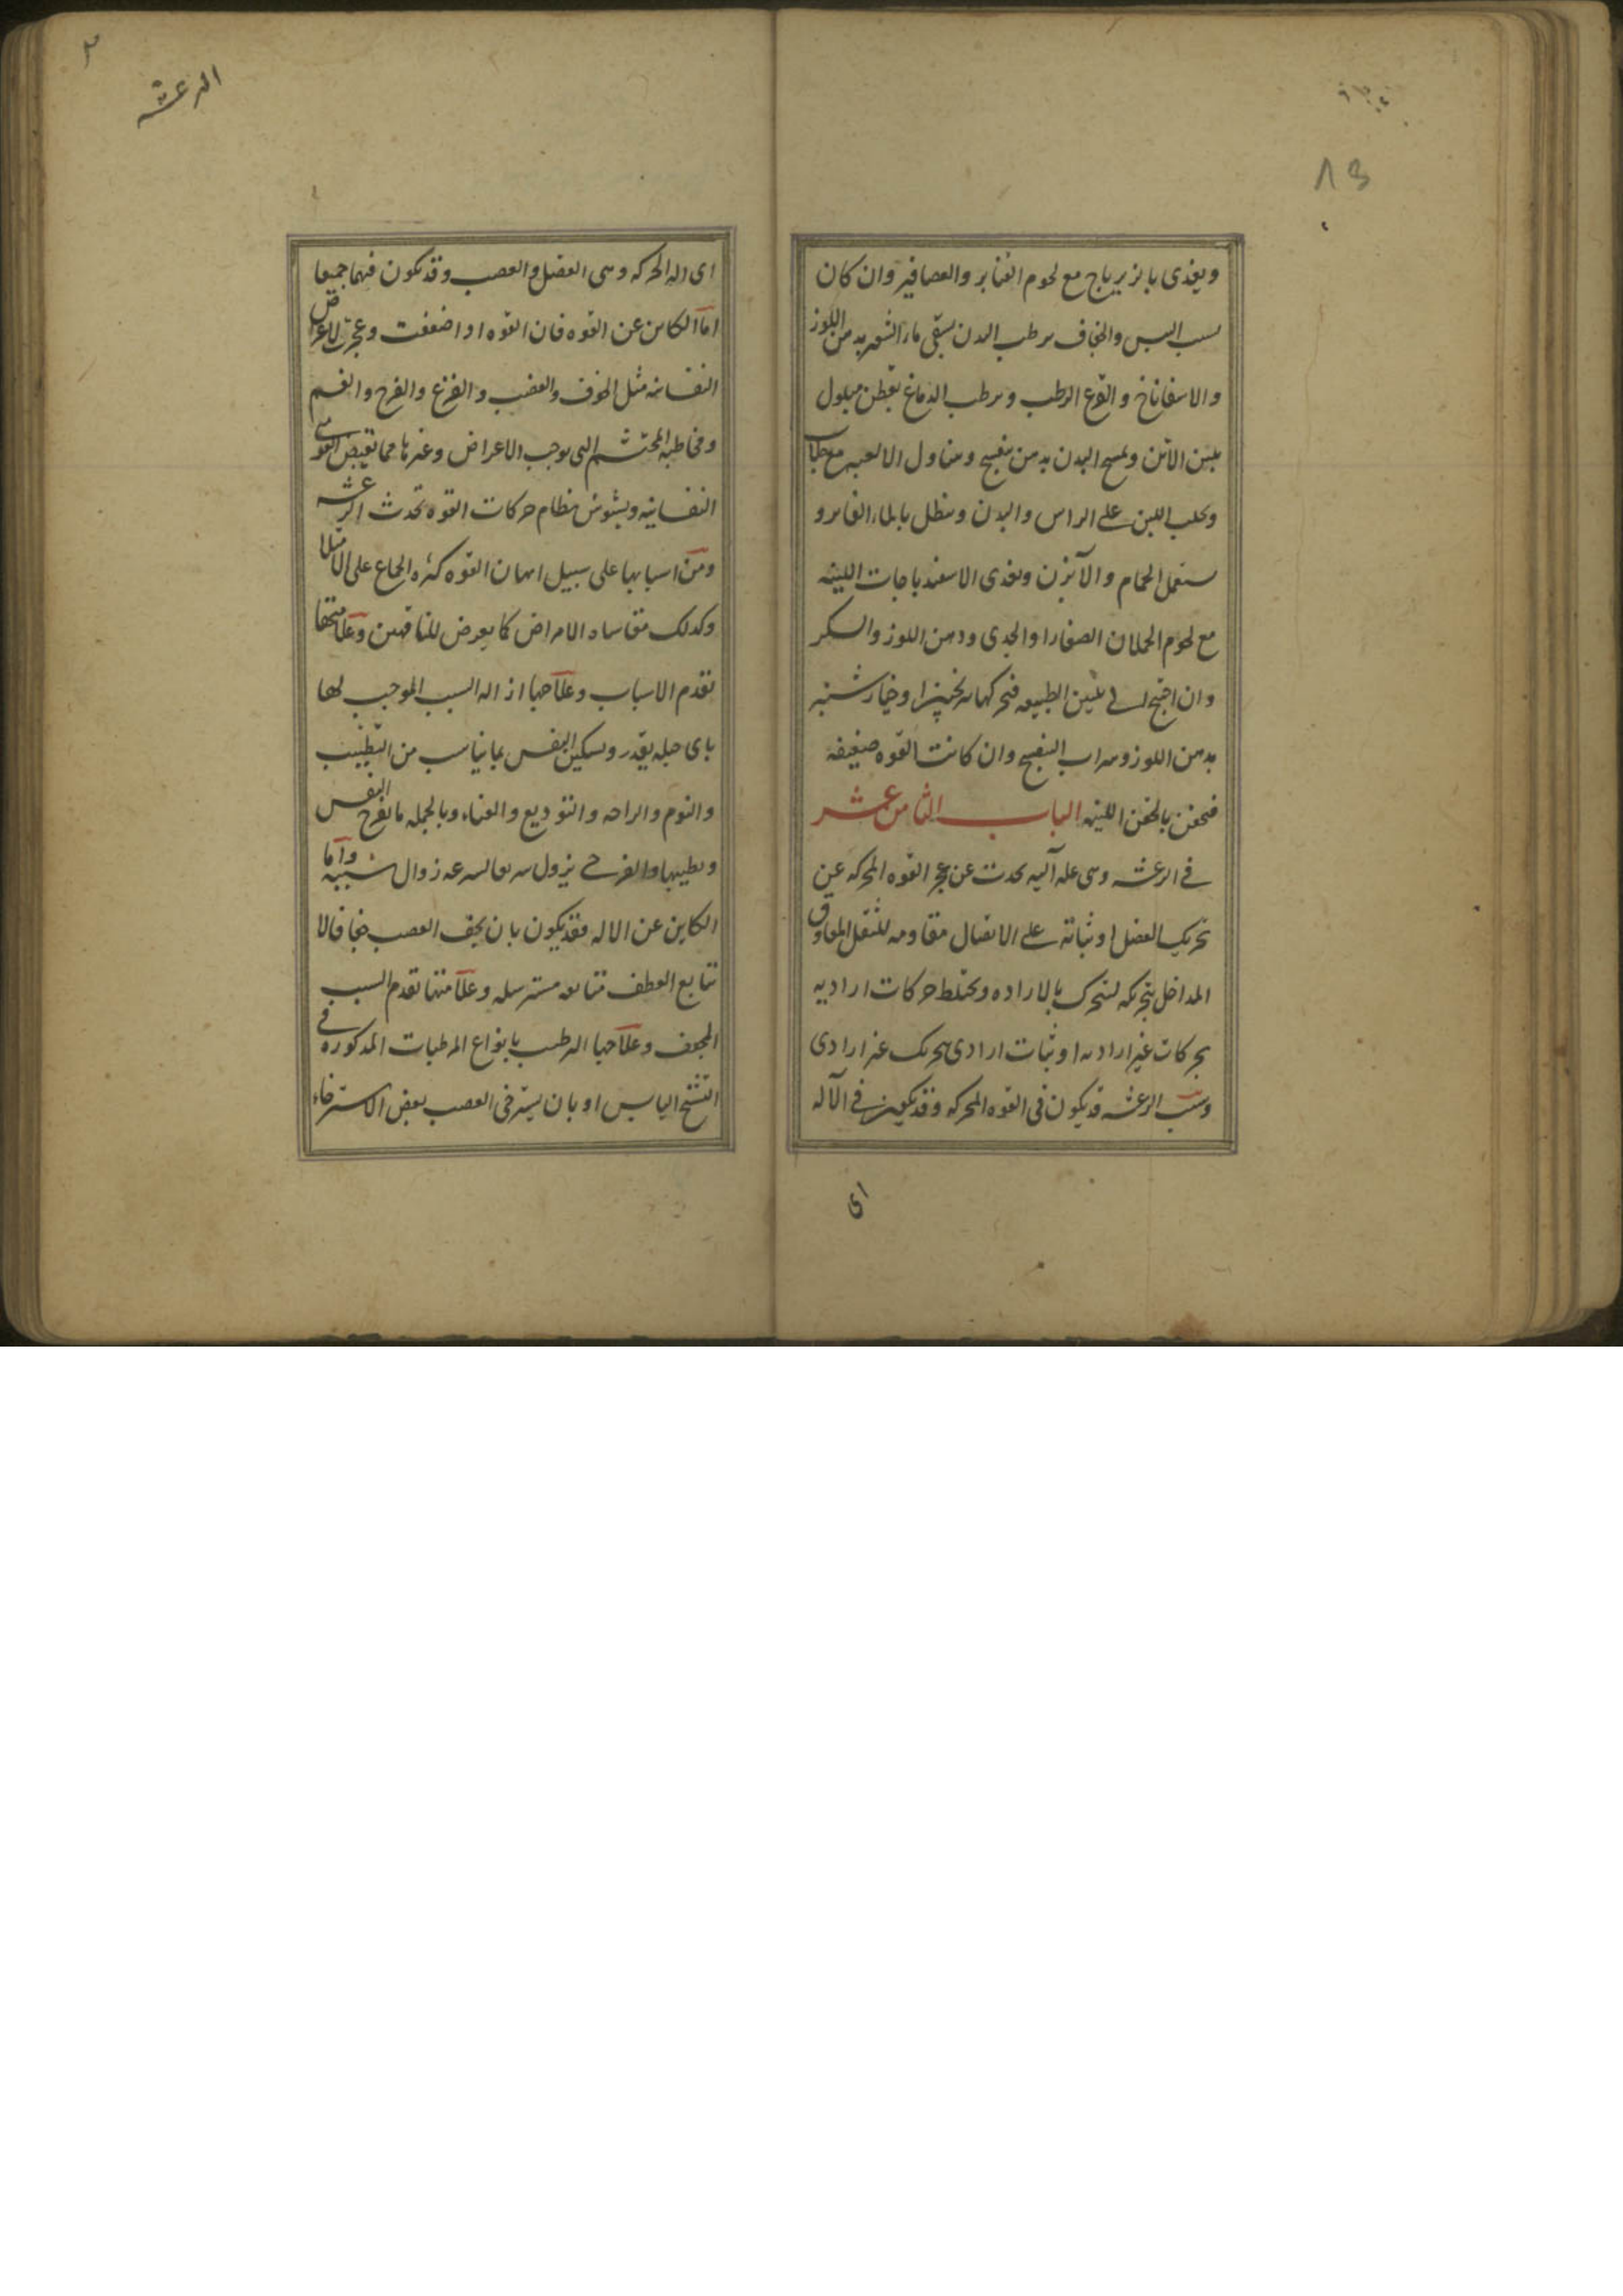 ٨٣
ويغذى بالزيرباج مع لحوم القنابر والعصافير وان كان
بسبب اليبس والجفاف يرطب البدن يسقى ماء الشعير بدهن اللوز
والاسفاناخ والقرع الرطب ويرطب الدماغ بقطن مبلول
بلبن الاتن ويمسح البدن بدهن بنفسج وتناول الالعبه مع
ويحلب اللبن على الراس والبدن وينطل بالماء الفاتر و
يستعمل الحمام والآبزن ويغذى الاسفيدباجات اللينه
مع لحوم الحملان الصغار او الجدى ودهن اللوز والسكر
وان احتيج الى تليين الطبيعه وخيارشنبر
بدهن اللوز وشراب البنفسج وان كانت القوه ضعيفه
فيحقن بالحقن اللينه الباب الثامن عشر
في الرعشه وهى عله آليه يحدث عن عجز القوه المحركه عن
تحريك العضل او ثباته على الاتصال مقاومه للثقل المعاوق
المداخل بتحريكه لتحرك بالاراده ويختلط حركات اراديه
بحركات غير اراديه او ثبات ارادى بتحريك غير ارادى
وسبب الرعشه قد يكون فى القوه المحركه وقد يكون في الآله
اى
الرعشه
اى اله الحركه وهى العضل والعصب وقد يكون فيهما جميعا
اما الكاين عن القوه فان القوه اذا ضعفت وعجزت الاعراض
النفسانيه مثل الخوف والغضب والفزع والفرح والغم
ومخاطبه المحتشم التى يوجب الاعراض وغيرها مما تقبض القوى
النفسانيه ويشوش نظام حركات القوه تحدث الرعشه
ومن اسبابها على سبيل ايهان القوه كثره الجماع على الامتلا
وكذلك مقاساه الامراض كما يعرض للناقهين وعلامتها
تقدم الاسباب وعلاجها ازاله السبب الموجب لها
باى حيله يقدر وتسكين النفس بما يناسب من التطبيب
والنوم والراحه والتوديع والغناء وبالجمله ما يفرح النفس
ويطيبها والفرحى يزول سريعا لسرعه زوال سببه واما
الكاين عن الاله فقد يكون بان يجف العصب جفافا لا
تتابع العطف متابعه مسترسله وعلامتها تقدم السبب
المجفف وعلاجها الترطيب بانواع المرطبات المذكوره في
التشنج اليابس او بان يسترخى العصب بعض الاسترخاء